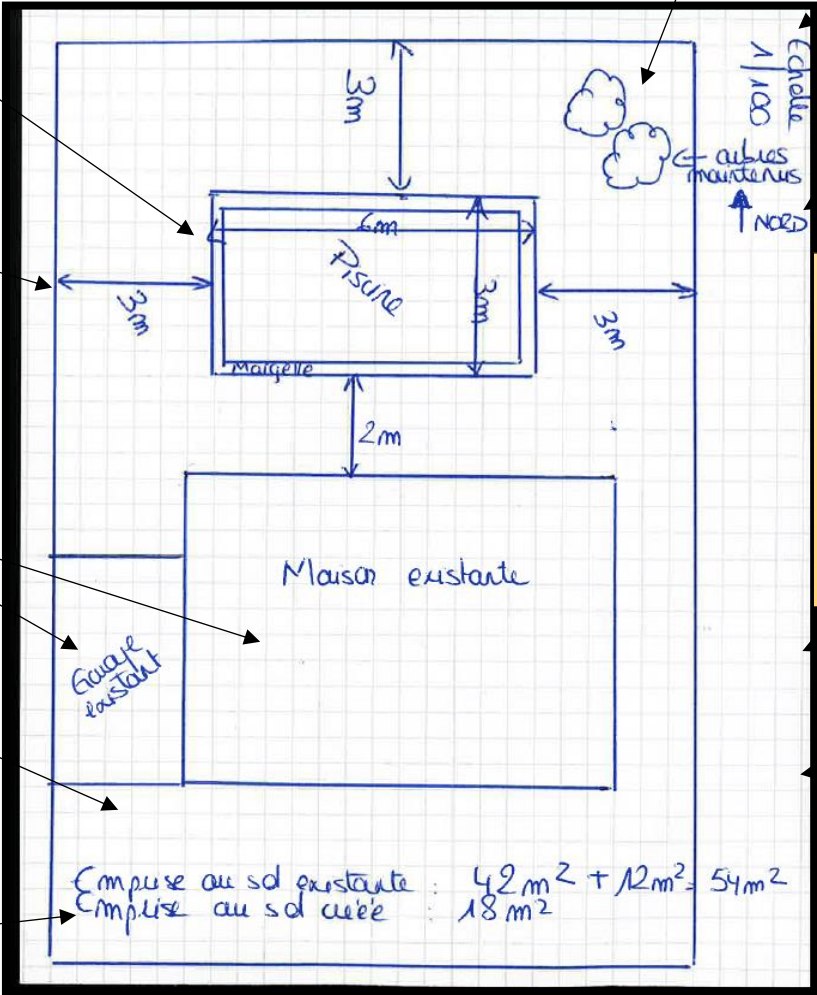 Echelle
1/100
3m
← arbres
maintenus
NORD
6m
Piscine
3m
3m
3m
Margelle
2m
Maison existante
Garage
existant
Emprise au sol existante : 42m² + 12m² = 54m²
Emprise au sol créée : 18m²